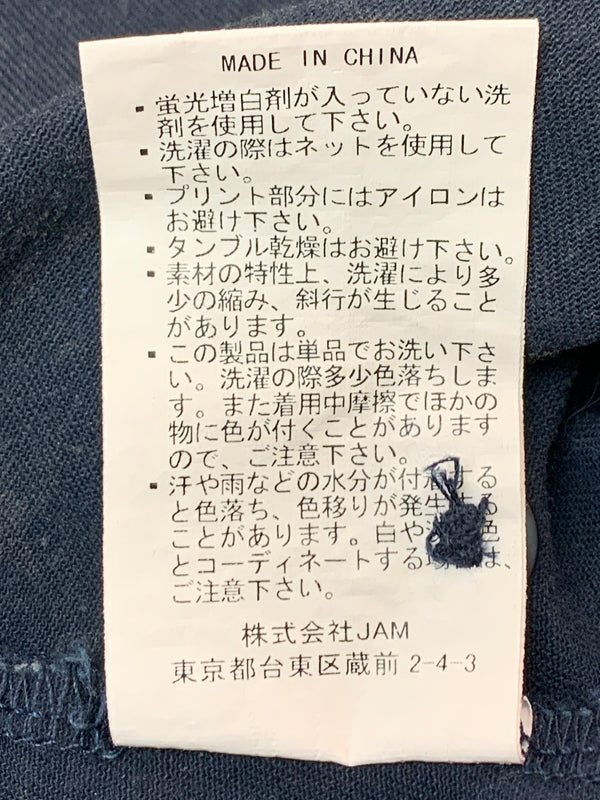 MADE IN CHINA
▪ 蛍光増白剤が入っていない洗
剤を使用して下さい。
▪ 洗濯の際はネットを使用して
下さい。
▪ プリント部分にはアイロンは
お避け下さい。
▪ タンブル乾燥はお避け下さい。
▪ 素材の特性上、洗濯により多
少の縮み、斜行が生じること
があります。
▪ この製品は単品でお洗い下さ
い。洗濯の際多少色落ちしま
す。また着用中摩擦でほかの
物に色が付くことがあります
ので、ご注意下さい。
▪ 汗や雨などの水分が付着する
と色落ち、色移りが発生する
ことがあります。白や 色
とコーディネートする は、
ご注意下さい。
株式会社JAM
東京都台東区蔵前 2-4-3